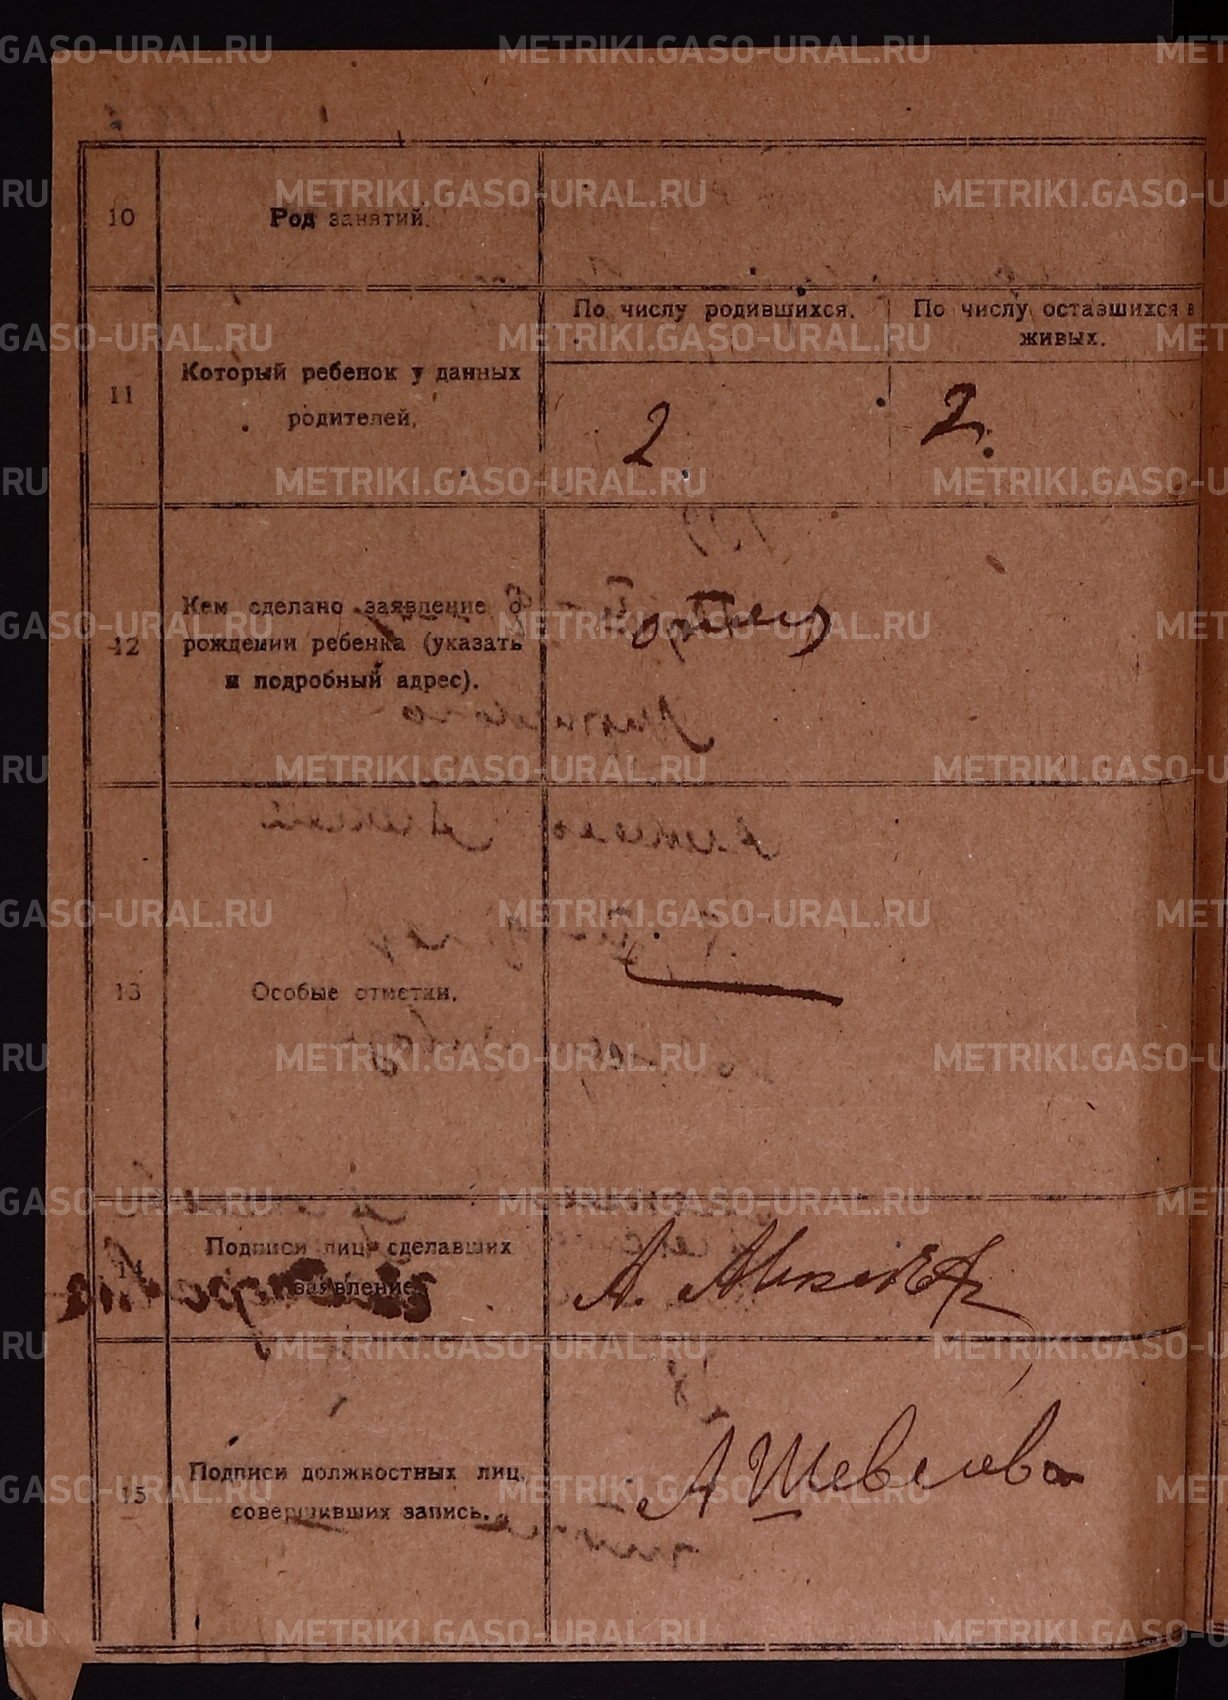 METRIKI.GASO-URAL.RU
10
Род занятий.
11
Который ребенок у данных
родителей.
По числу родившихся.
По числу оставшихся в
живых.
2.
2.
12
Кем сделано заявление о
рождении ребенка (указать
и подробный адрес).
Отец
13
Особые отметки.
14
Подписи лиц, сделавших
заявление.
А.
15
Подписи должностных лиц,
совершивших запись.
А Шевелева